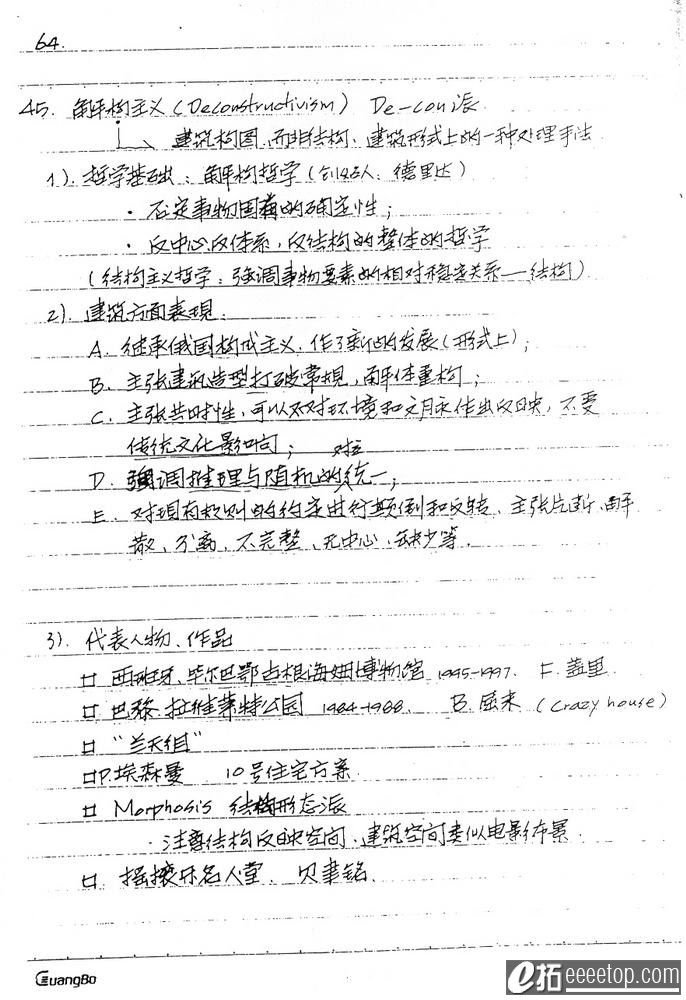 64.
45. 解构主义 (Deconstructivism) De-con派
建筑构图,而非结构、建筑形式上的一种处理手法
1). 哲学基础:解构哲学(创始人:德里达)
· 否定事物固有的确定性;
· 反中心反体系,反结构的整体的哲学
(结构主义哲学:强调事物要素的相对稳定关系—结构)
2). 建筑方面表现:
A. 继承俄国构成主义,作了新的发展(形式上);
B. 主张建筑造型打破常规,解体重构;
C. 主张共时性,可以不对环境和文脉作出反映,不受
传统文化影响;
对立
D. 强调推理与随机的统一;
E. 对现有规则的约定进行颠倒和反转、主张片断、解
散、分离、不完整、无中心、缺少等.
3). 代表人物、作品
□ 西班牙、毕尔巴鄂古根海姆博物馆 1995-1997. F. 盖里
□ 巴黎.拉维莱特公园 1984-1988. B. 屈米 (Crazy house)
□ “兰天组”
□P.埃森曼 10号住宅方案
□ Morphosis 结构形态派
·注意结构反映空间、建筑空间类似电影布景.
□ 摇滚乐名人堂. 贝聿铭.
GuangBo
e拓eeeetop.com